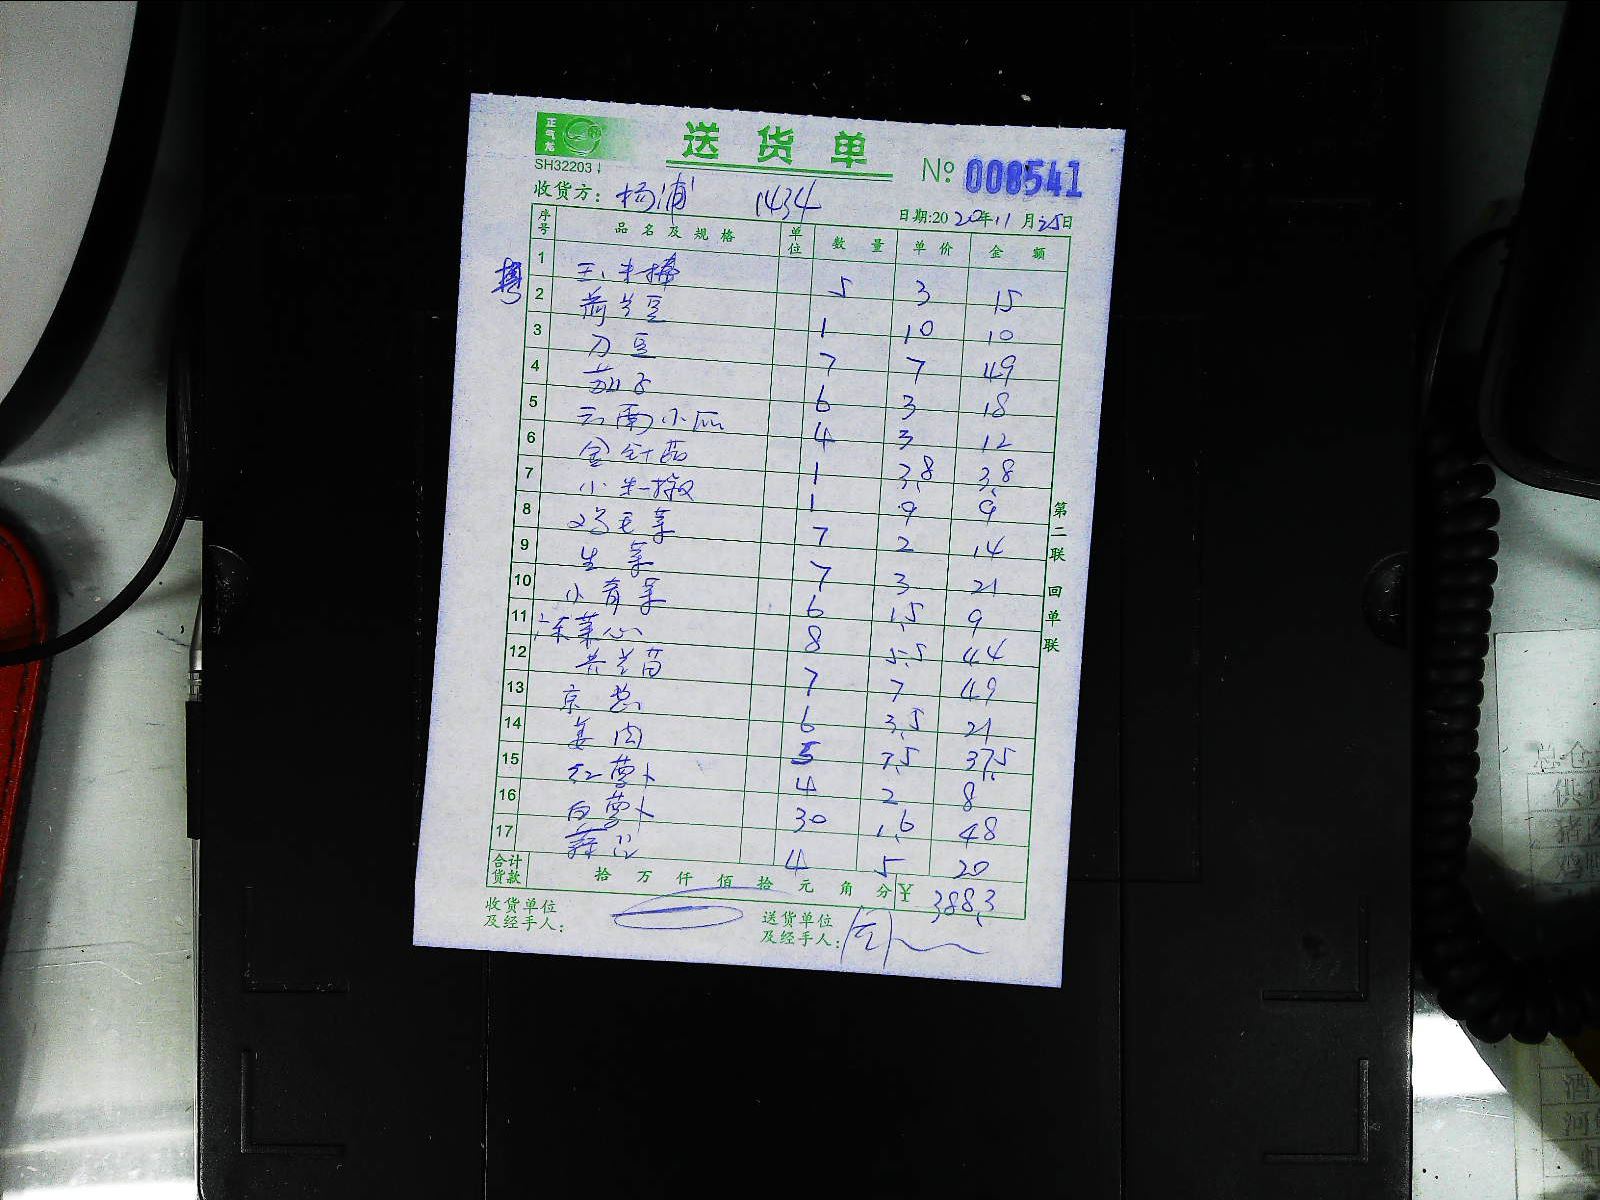 正气龙
SH32203
送货单
№ 008541
收货方: 杨浦 1434
日期:2020年11月25日
序号 品名及规格 单位 数量 单价 金额
1 玉米棒 5 3 15
2 荷兰豆 1 10 10
3 刀豆 7 7 49
4 茄子 6 3 18
5 云南小瓜 4 3 12
6 金针菇 1 3.8 3.8
7 小米椒 1 9 9
8 鸡毛菜 7 2 14
9 生菜 7 3 21
10 小青菜 6 1.5 9
11 菜心 8 5.5 44
12 共兰苗 7 7 49
13 京葱 6 3.5 21
14 姜肉 5 7.5 37.5
15 红萝卜 4 2 8
16 白萝卜 30 1.6 48
17 蒜 4 5 20
合计货款 拾 万 仟 佰 拾 元 角 分 ¥ 388.3
收货单位及经手人:
送货单位及经手人:
第二联 回单联
总仓
供
猪
鸡
酒
河